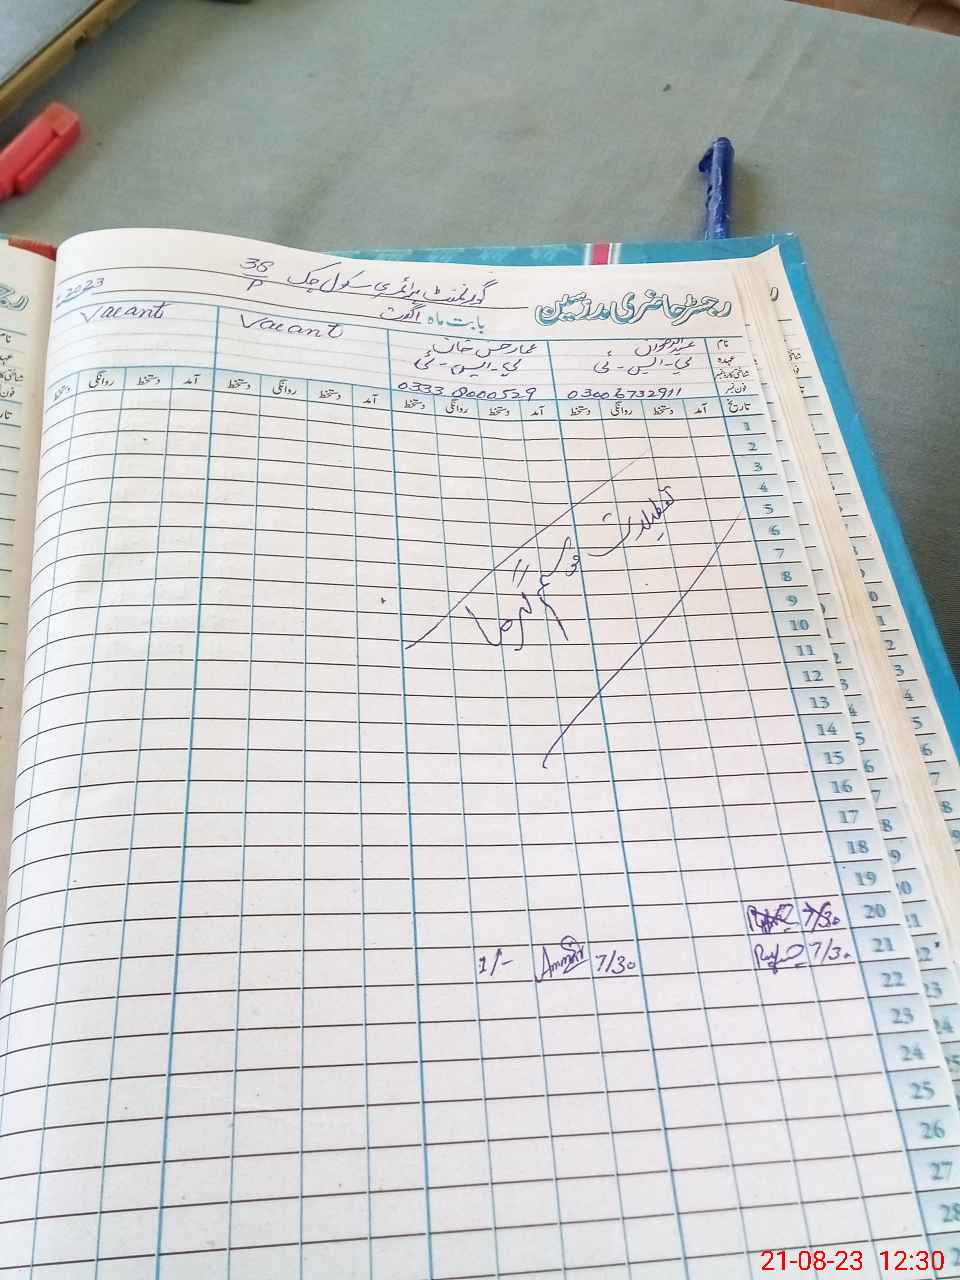 رجسٹر حاضری مدرسین
گورنمنٹ پرائمری سکول چک 38/P
بابت ماہ اگست 2023
نام عبدالرحمان عمار حسن خان Vacant Vacant
عہدہ ئی۔ایس۔ئی ئی۔ایس۔ئی
شناختی کارڈ نمبر
فون نمبر 03006732911 0333 8000529
تاریخ آمد دستخط روانگی دستخط آمد دستخط روانگی دستخط آمد دستخط روانگی دستخط آمد دستخط روانگی دستخط
1
2
3
4
5
6
7
8
9
10
11
12
13
14
15
16
17
18
19
تعطیلات موسم گرما
20 7/30
21 7/30 7/30 Ammar 1/-
22
23
24
25
26
27
28
21-08-23 12:30